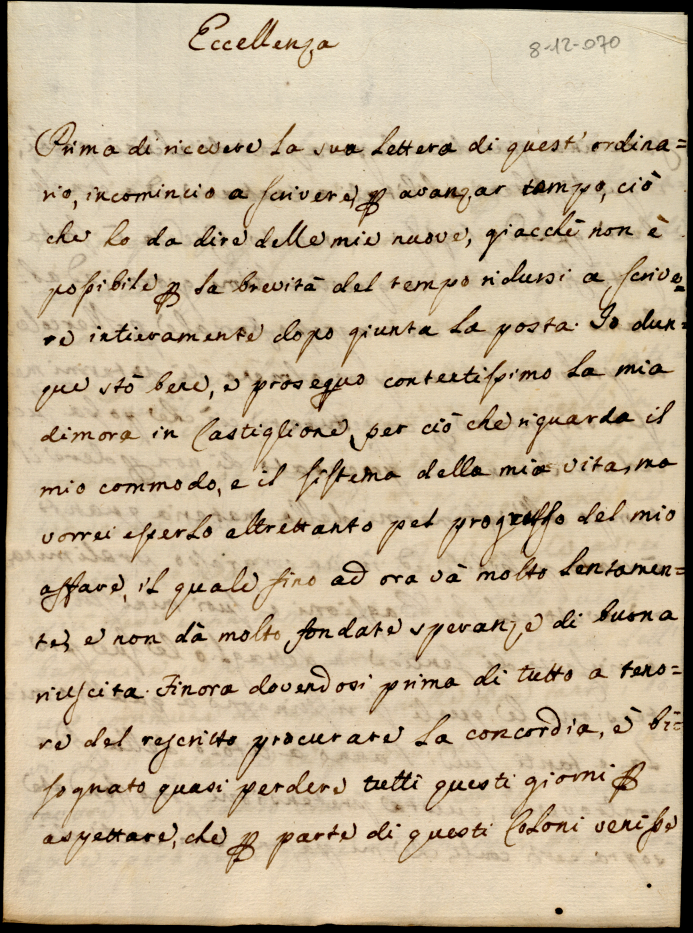 Eccellenza
8-12-070
Prima di ricevere la sua lettera di quest' ordina=
rio, incomincio a scrivere ꝑ avanzar tempo, ciò
che ho da dire delle mie nuove, giacchè non è
possibile ꝑ la brevità del tempo ridursi a scrive=
re intieramente dopo giunta la posta. Io dun=
que stò bene, e proseguo contentissimo la mia
dimora in Castiglione, per ciò che riguarda il
mio commodo, e il sistema della mia vita, ma
vorrei esserlo altrettanto pel progresso del mio
affare, il quale sino ad ora và molto lentamen=
te, e non dà molto fondate speranze di buona
riuscita. Finora dovendosi prima di tutto a teno=
re del rescritto procurare la concordia, è bi=
sognato quasi perdere tutti questi giorni ꝑ
aspettare, che ꝑ parte di questi Coloni venisse